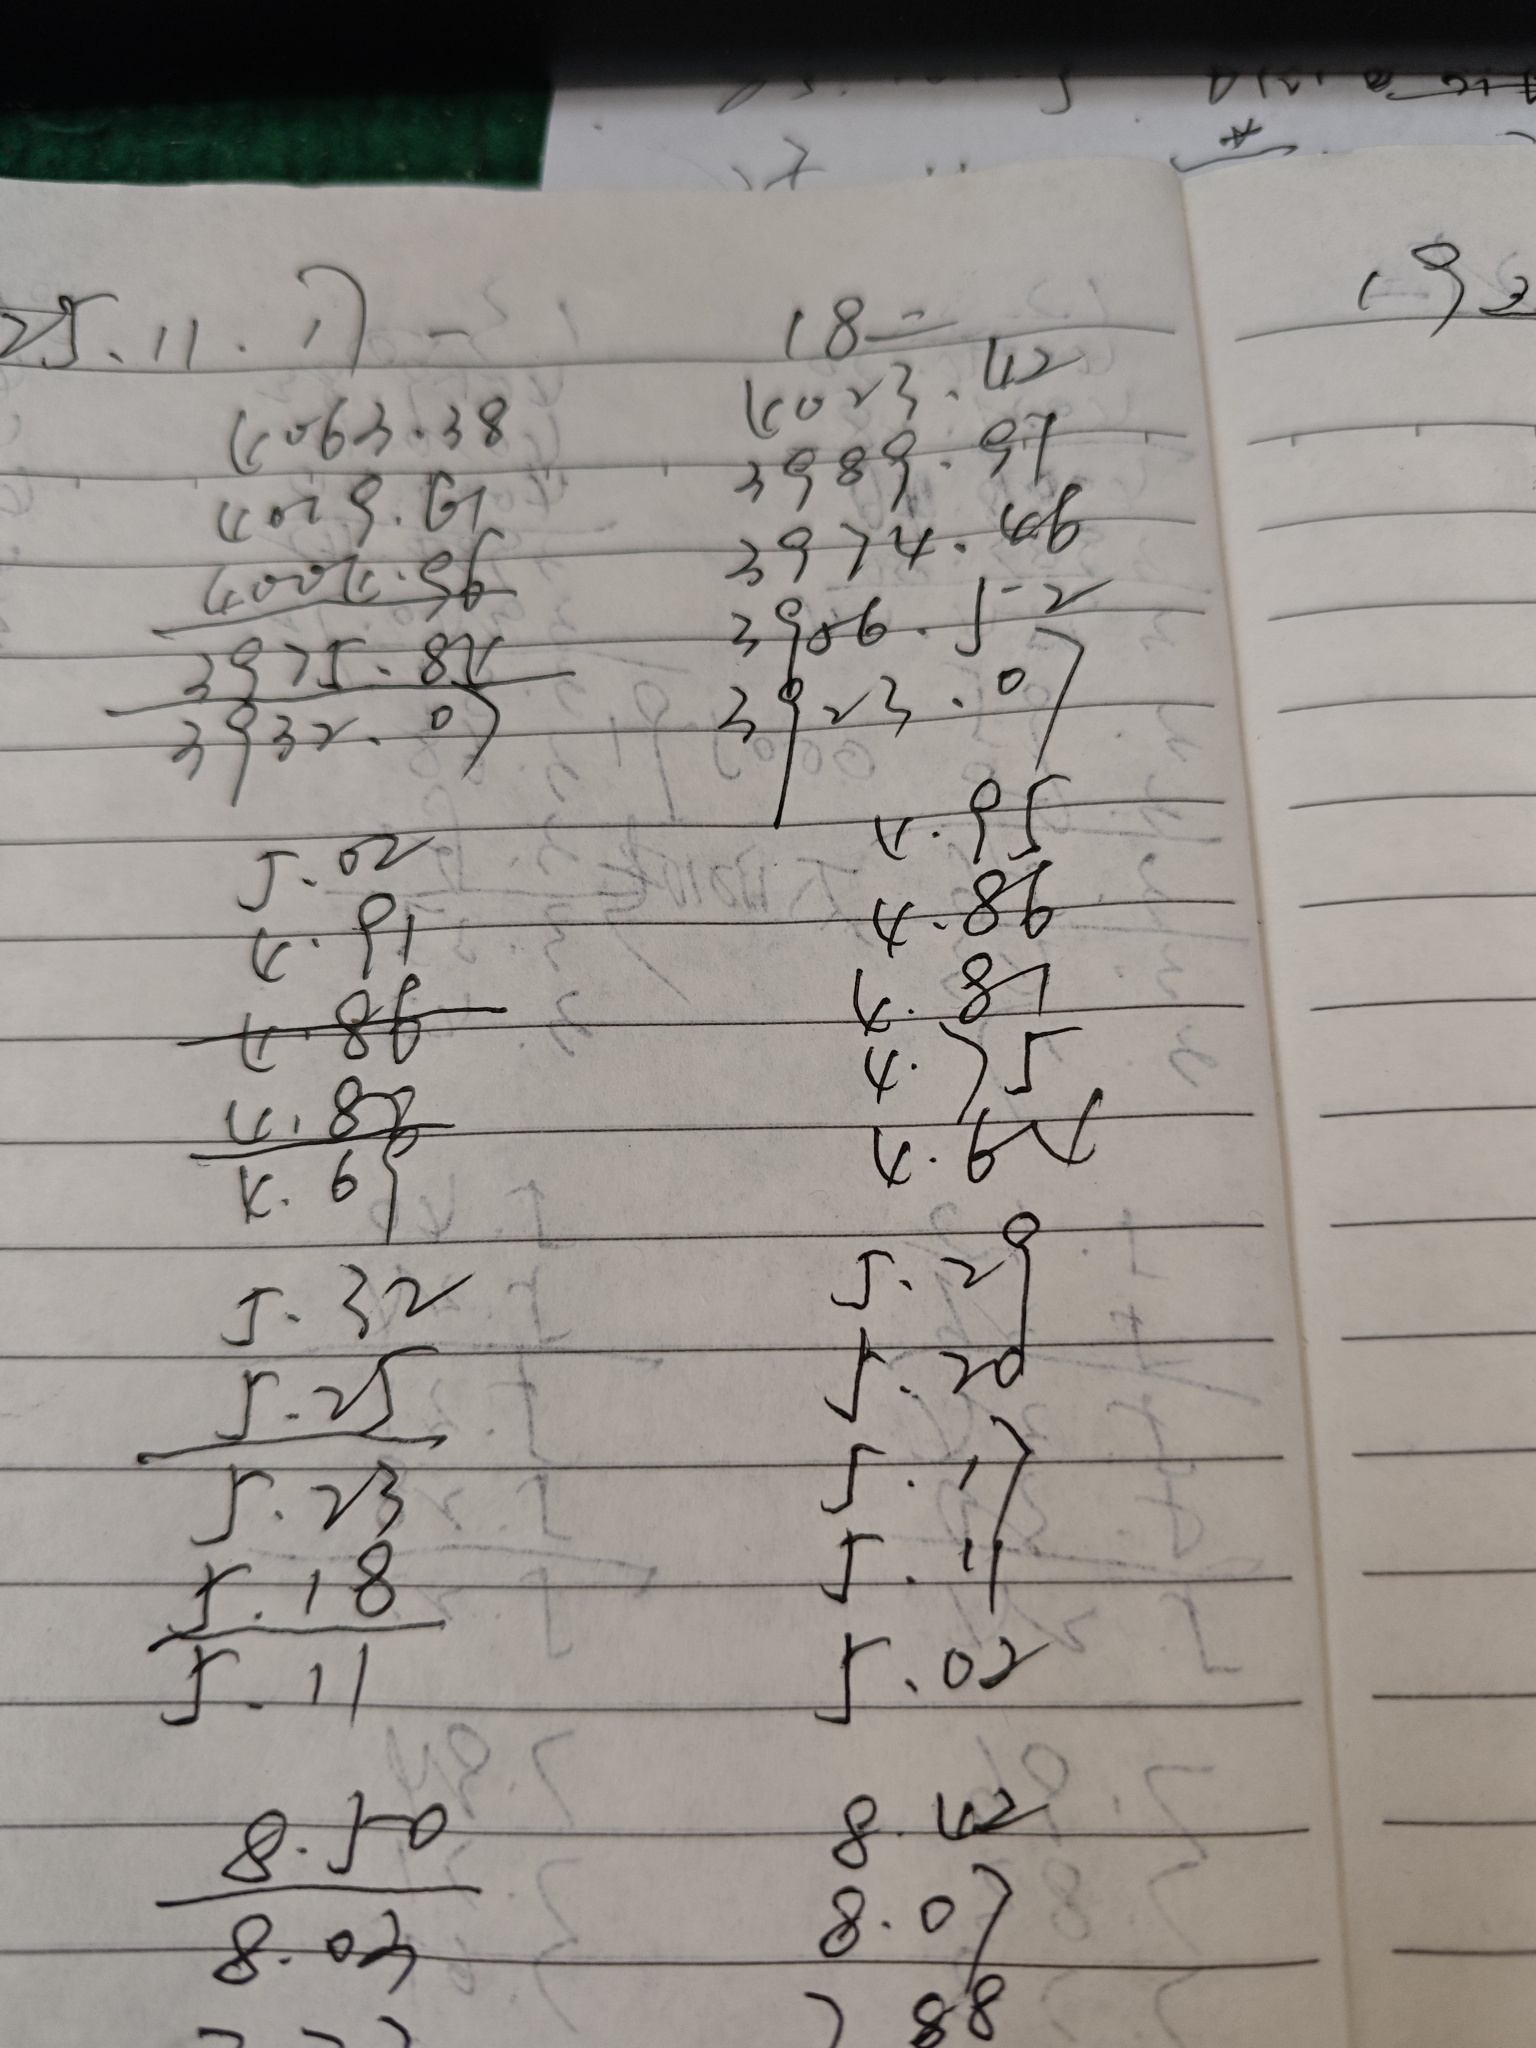 25.11.17 一
4063.38
4029.61
4004.96
3975.84
3932.07
5.02
4.91
4.86
4.87
4.69
5.32
5.25
5.23
5.18
5.11
8.50
8.03
18二
4023.42
3989.97
3974.46
3906.52
3923.07
4.95
4.86
4.87
4.75
4.64
5.29
5.20
5.17
5.11
5.02
8.42
8.07
7 88
19三